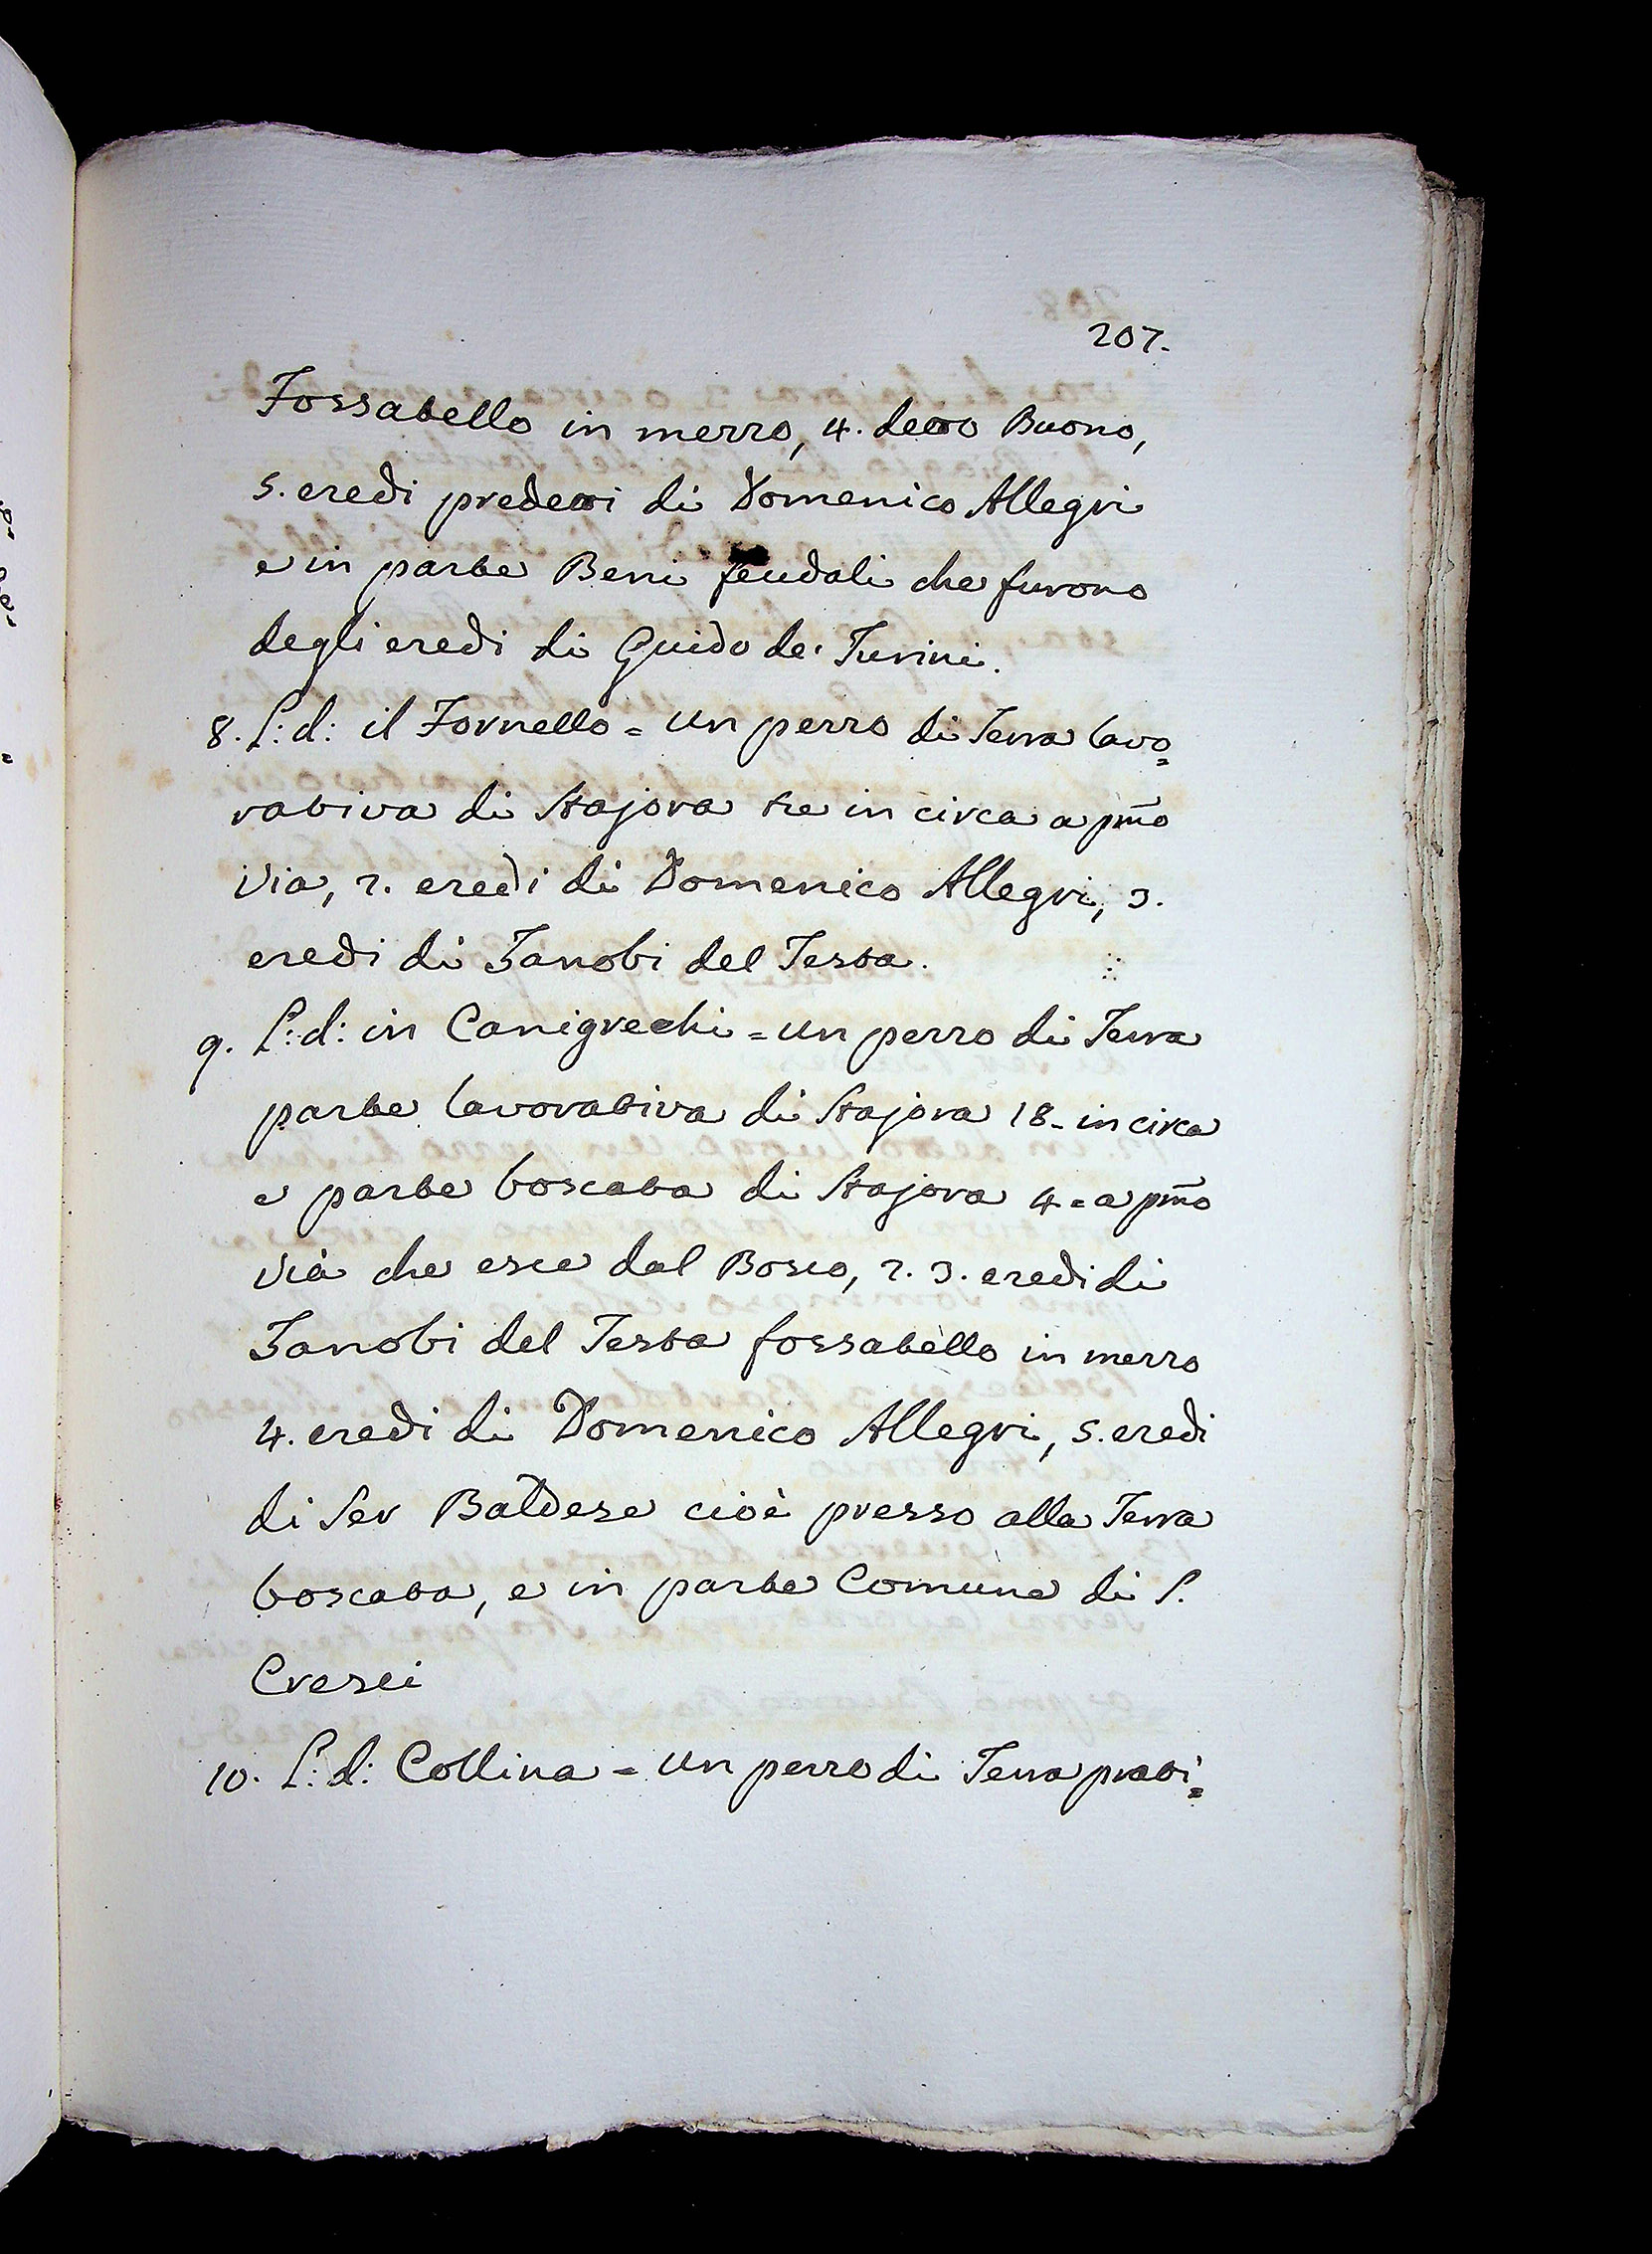 207.
Fossatello in mezzo, 4. detto Buono,
5. eredi predetti di Domenico Allegri
e in parte Beni feudali che furono
degli eredi di Guido de' Turini.
8. L: d: il Fornello = un pezzo di Terra lavo=
rativa di Stajora tre in circa a pm̃o
Via, 2. eredi di Domenico Allegri, 3.
eredi di Zanobi del Testa.
9. L: d: in Canigrechi = un pezzo di Terra
parte lavorativa di Stajora 18. in circa
e parte boscata di Stajora 4 = a pm̃o
Via che esce dal Bosco, 2. 3. eredi di
Zanobi del Testa fossatello in mezzo
4. eredi di Domenico Allegri, 5. eredi
di Ser Baldese cioè presso alla Terra
boscata, e in parte Comune di S.
Cresci
10. L: d: Collina = un pezzo di Terra prati=